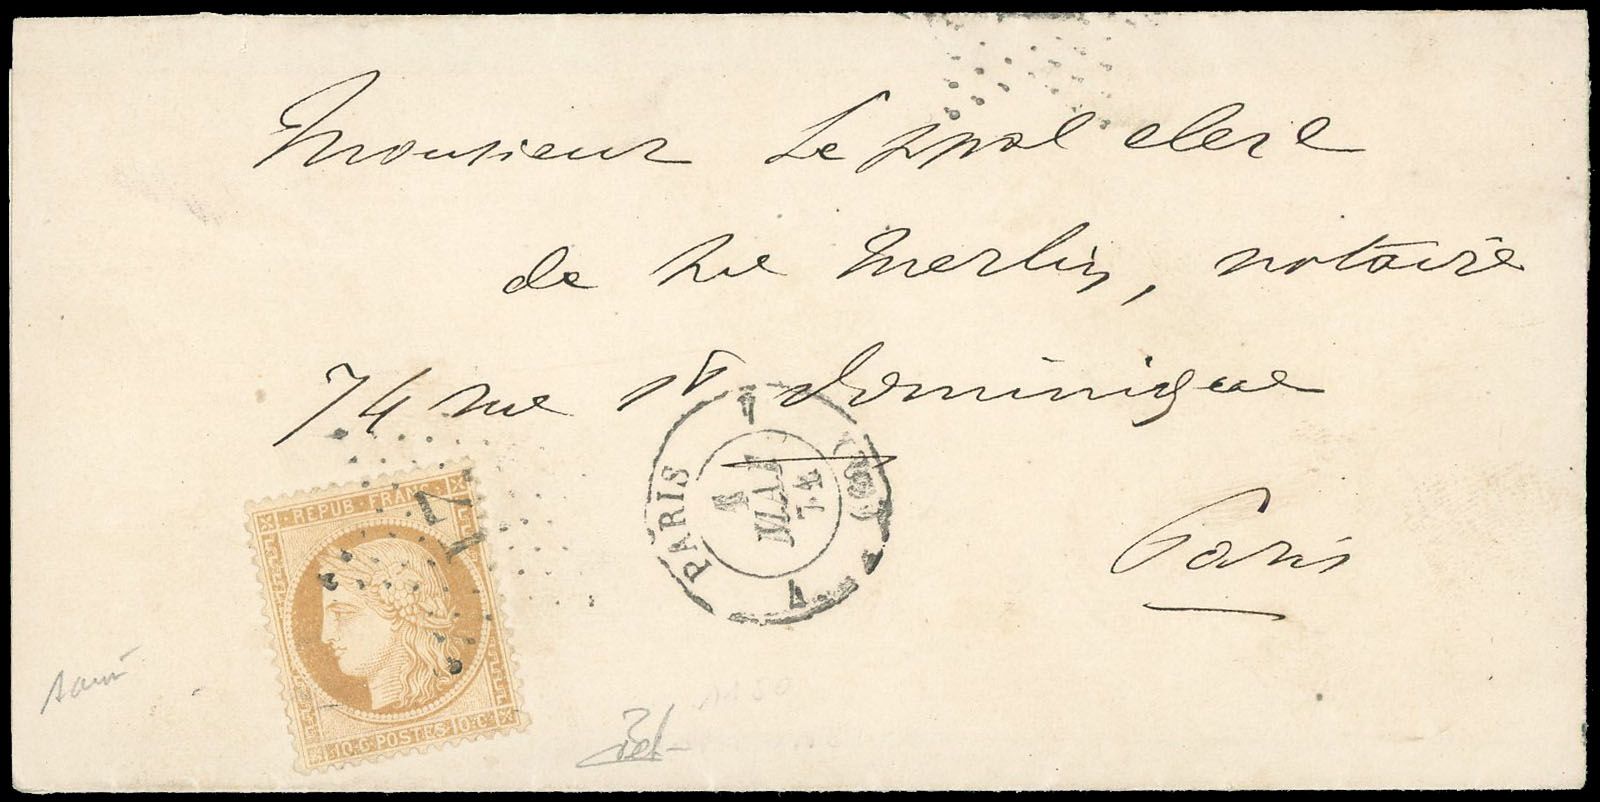 Monsieur Le ppal clerc
de Me Merlin, notaire
74 rue St Dominique
Paris
REPUB. FRANC.
10.C POSTES 10.C
17
PARIS
1
MAI
74